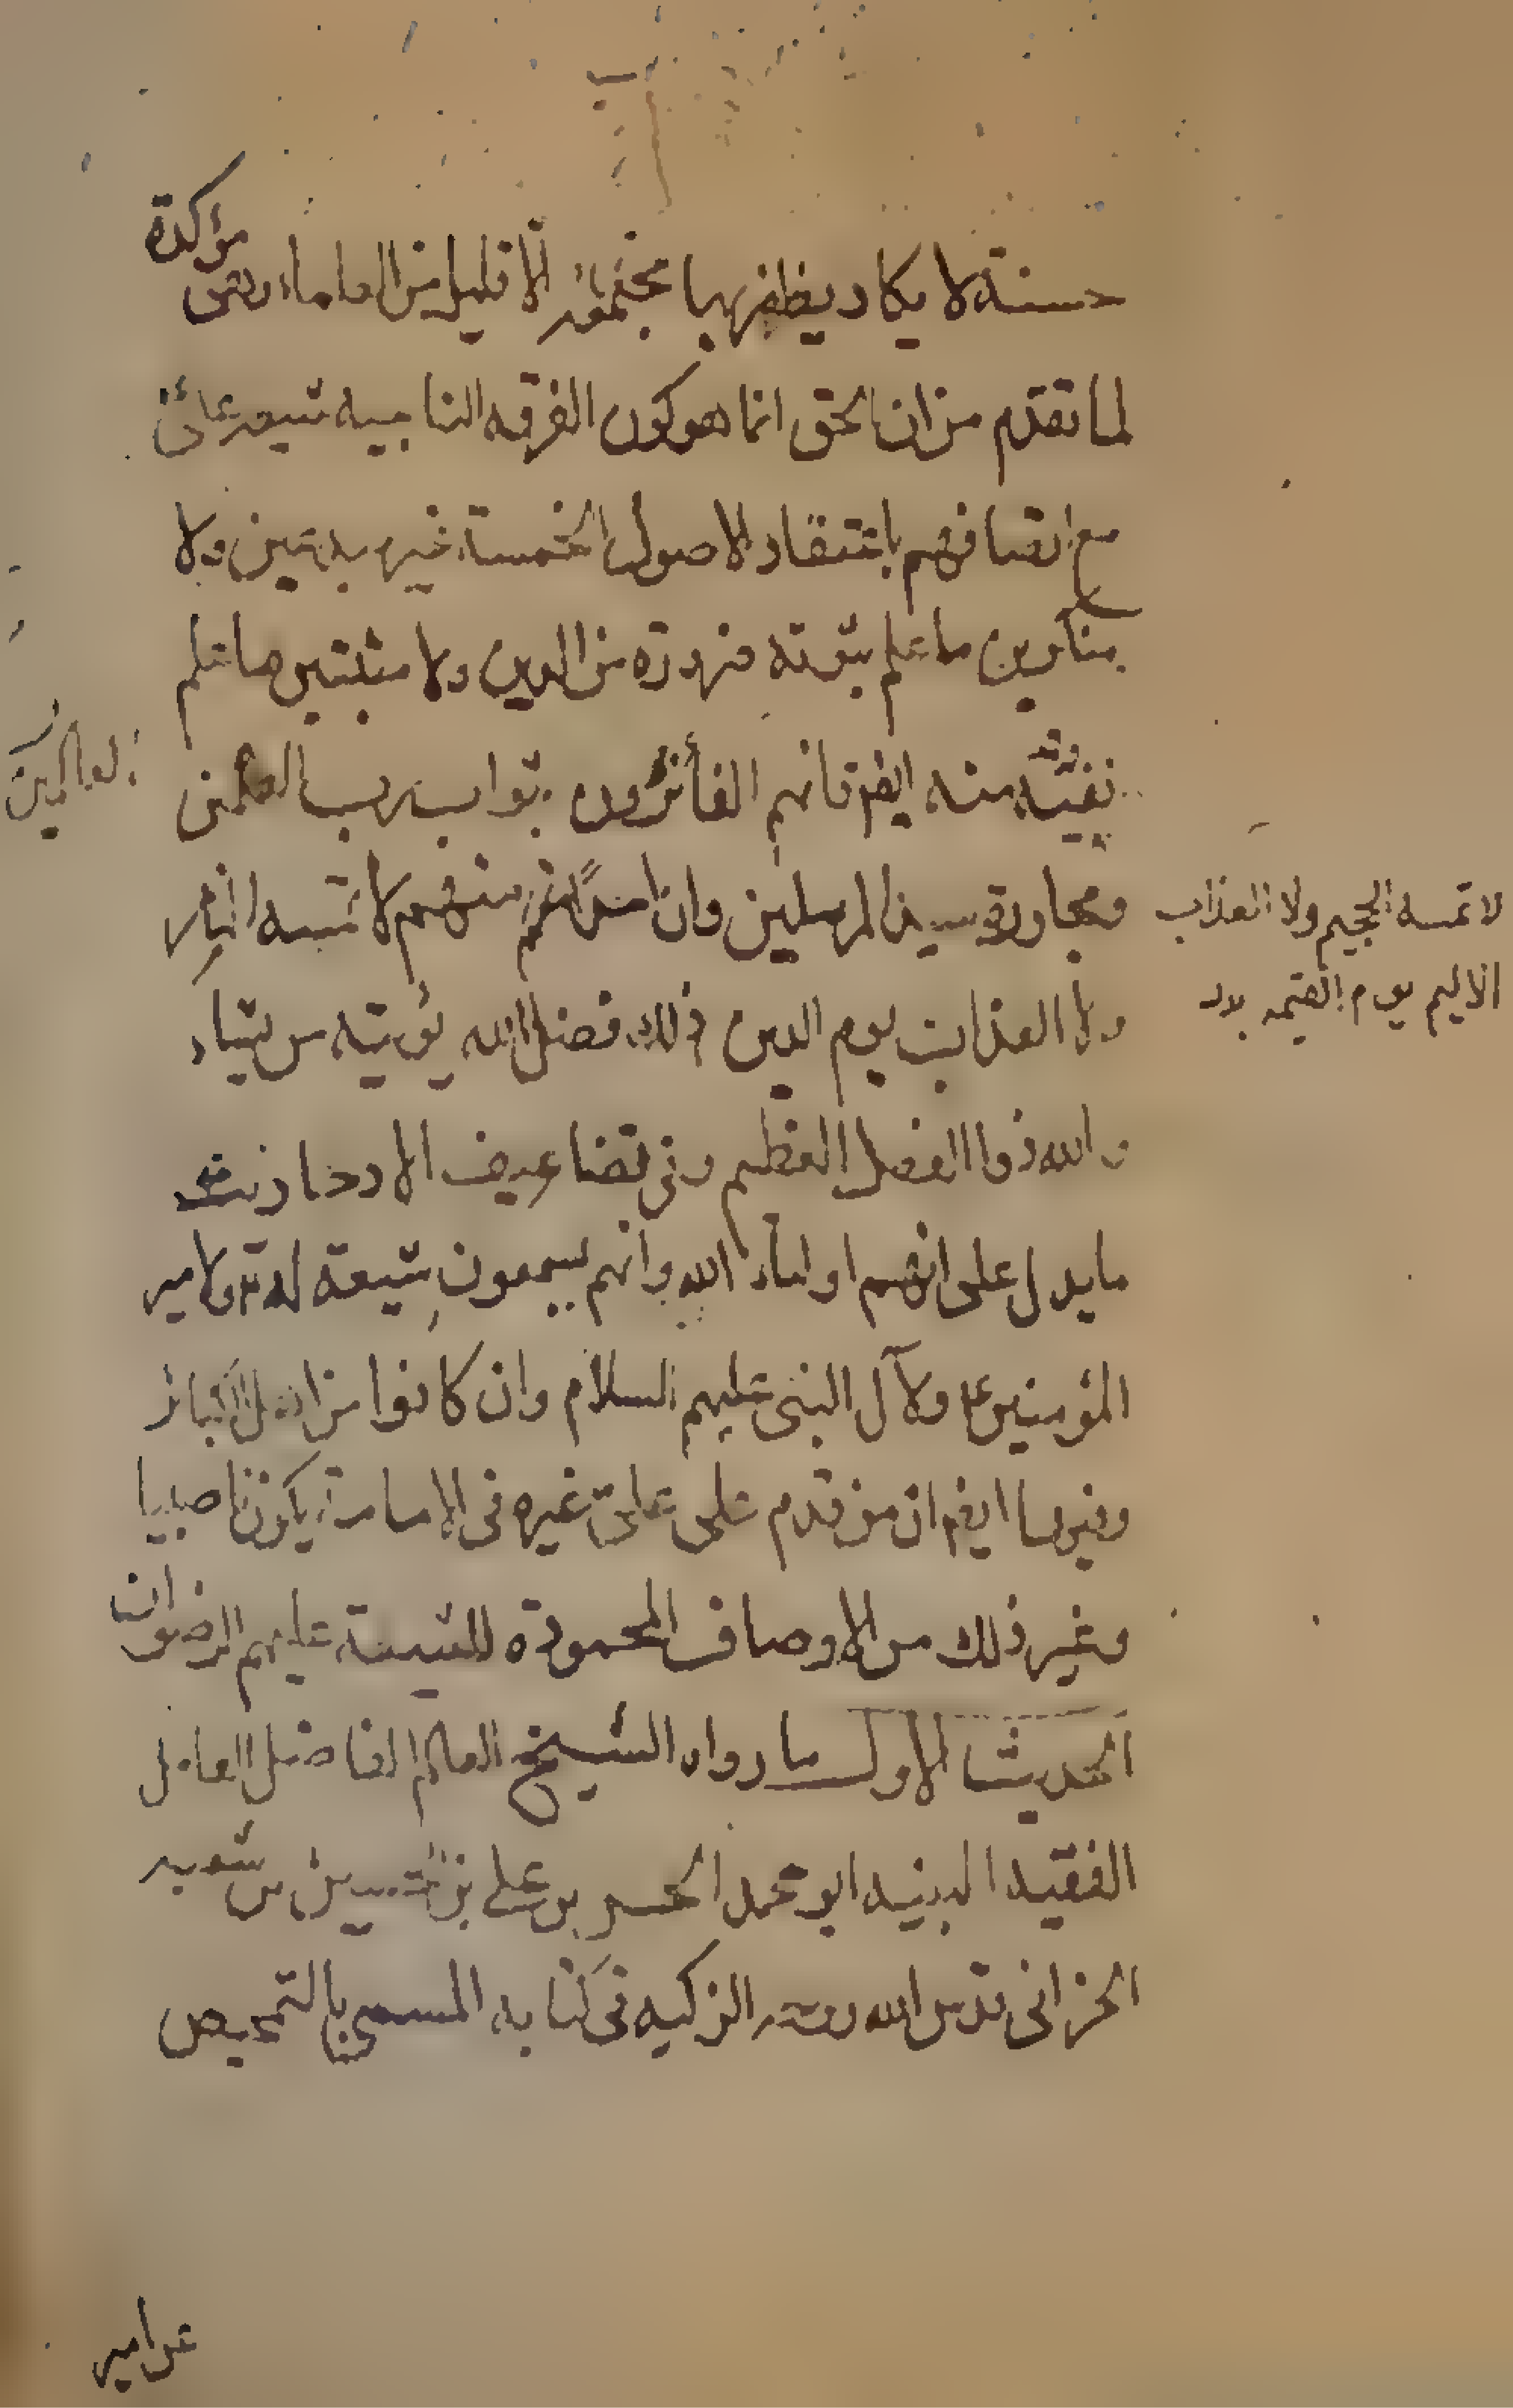 حسنة لا يكاد يظفر بها مجتمعة إلّا قليل من العلماء وهى مؤكدة
لما تقدم من ان الحق انما هو كون الفرقه الناجيه شيعة على
مع اتصافهم باعتقاد الاصول الخمسة غير مبدعين ولا
منكرين ما علم ثبوته ضرورة من الدين ولا مثبتين ما علم
نفيه منه ايضم فانهم الفائزون بثواب رب العلمين
العالمين
ومجاورة سيد المرسلين وان منهم لا تمسه النار
لا تمسه الجحيم ولا العذاب
الاليم يوم القيمه بدل
ولا العذاب يوم الدين ذلك فضل الله يؤتيه من يشاء
والله ذوا الفضل العظيم وفى تضاعيف الاحاديث
ما يدل على انهم اولياء الله وانهم يسمعون شيعة لله ولامير
المؤمنين ع ولآل النبى عليهم السلام وان كانوا من اهل الكبائر
وفيها ايضم ان من قدم على على غيره فى الامامة يكون ناصبيا
وغير ذلك من الاوصاف المحمودة للشيعة عليهم الرضوان
الحديث الاول ما رواه الشيخ العالم الفاضل العامل
الفقيه النبيه ابو محمد الحسن بن على بن الحسين بن شعبه
الحرانى قدس الله روحه الزكيه فى كتابه المسمى بالتمحيص
عن امير